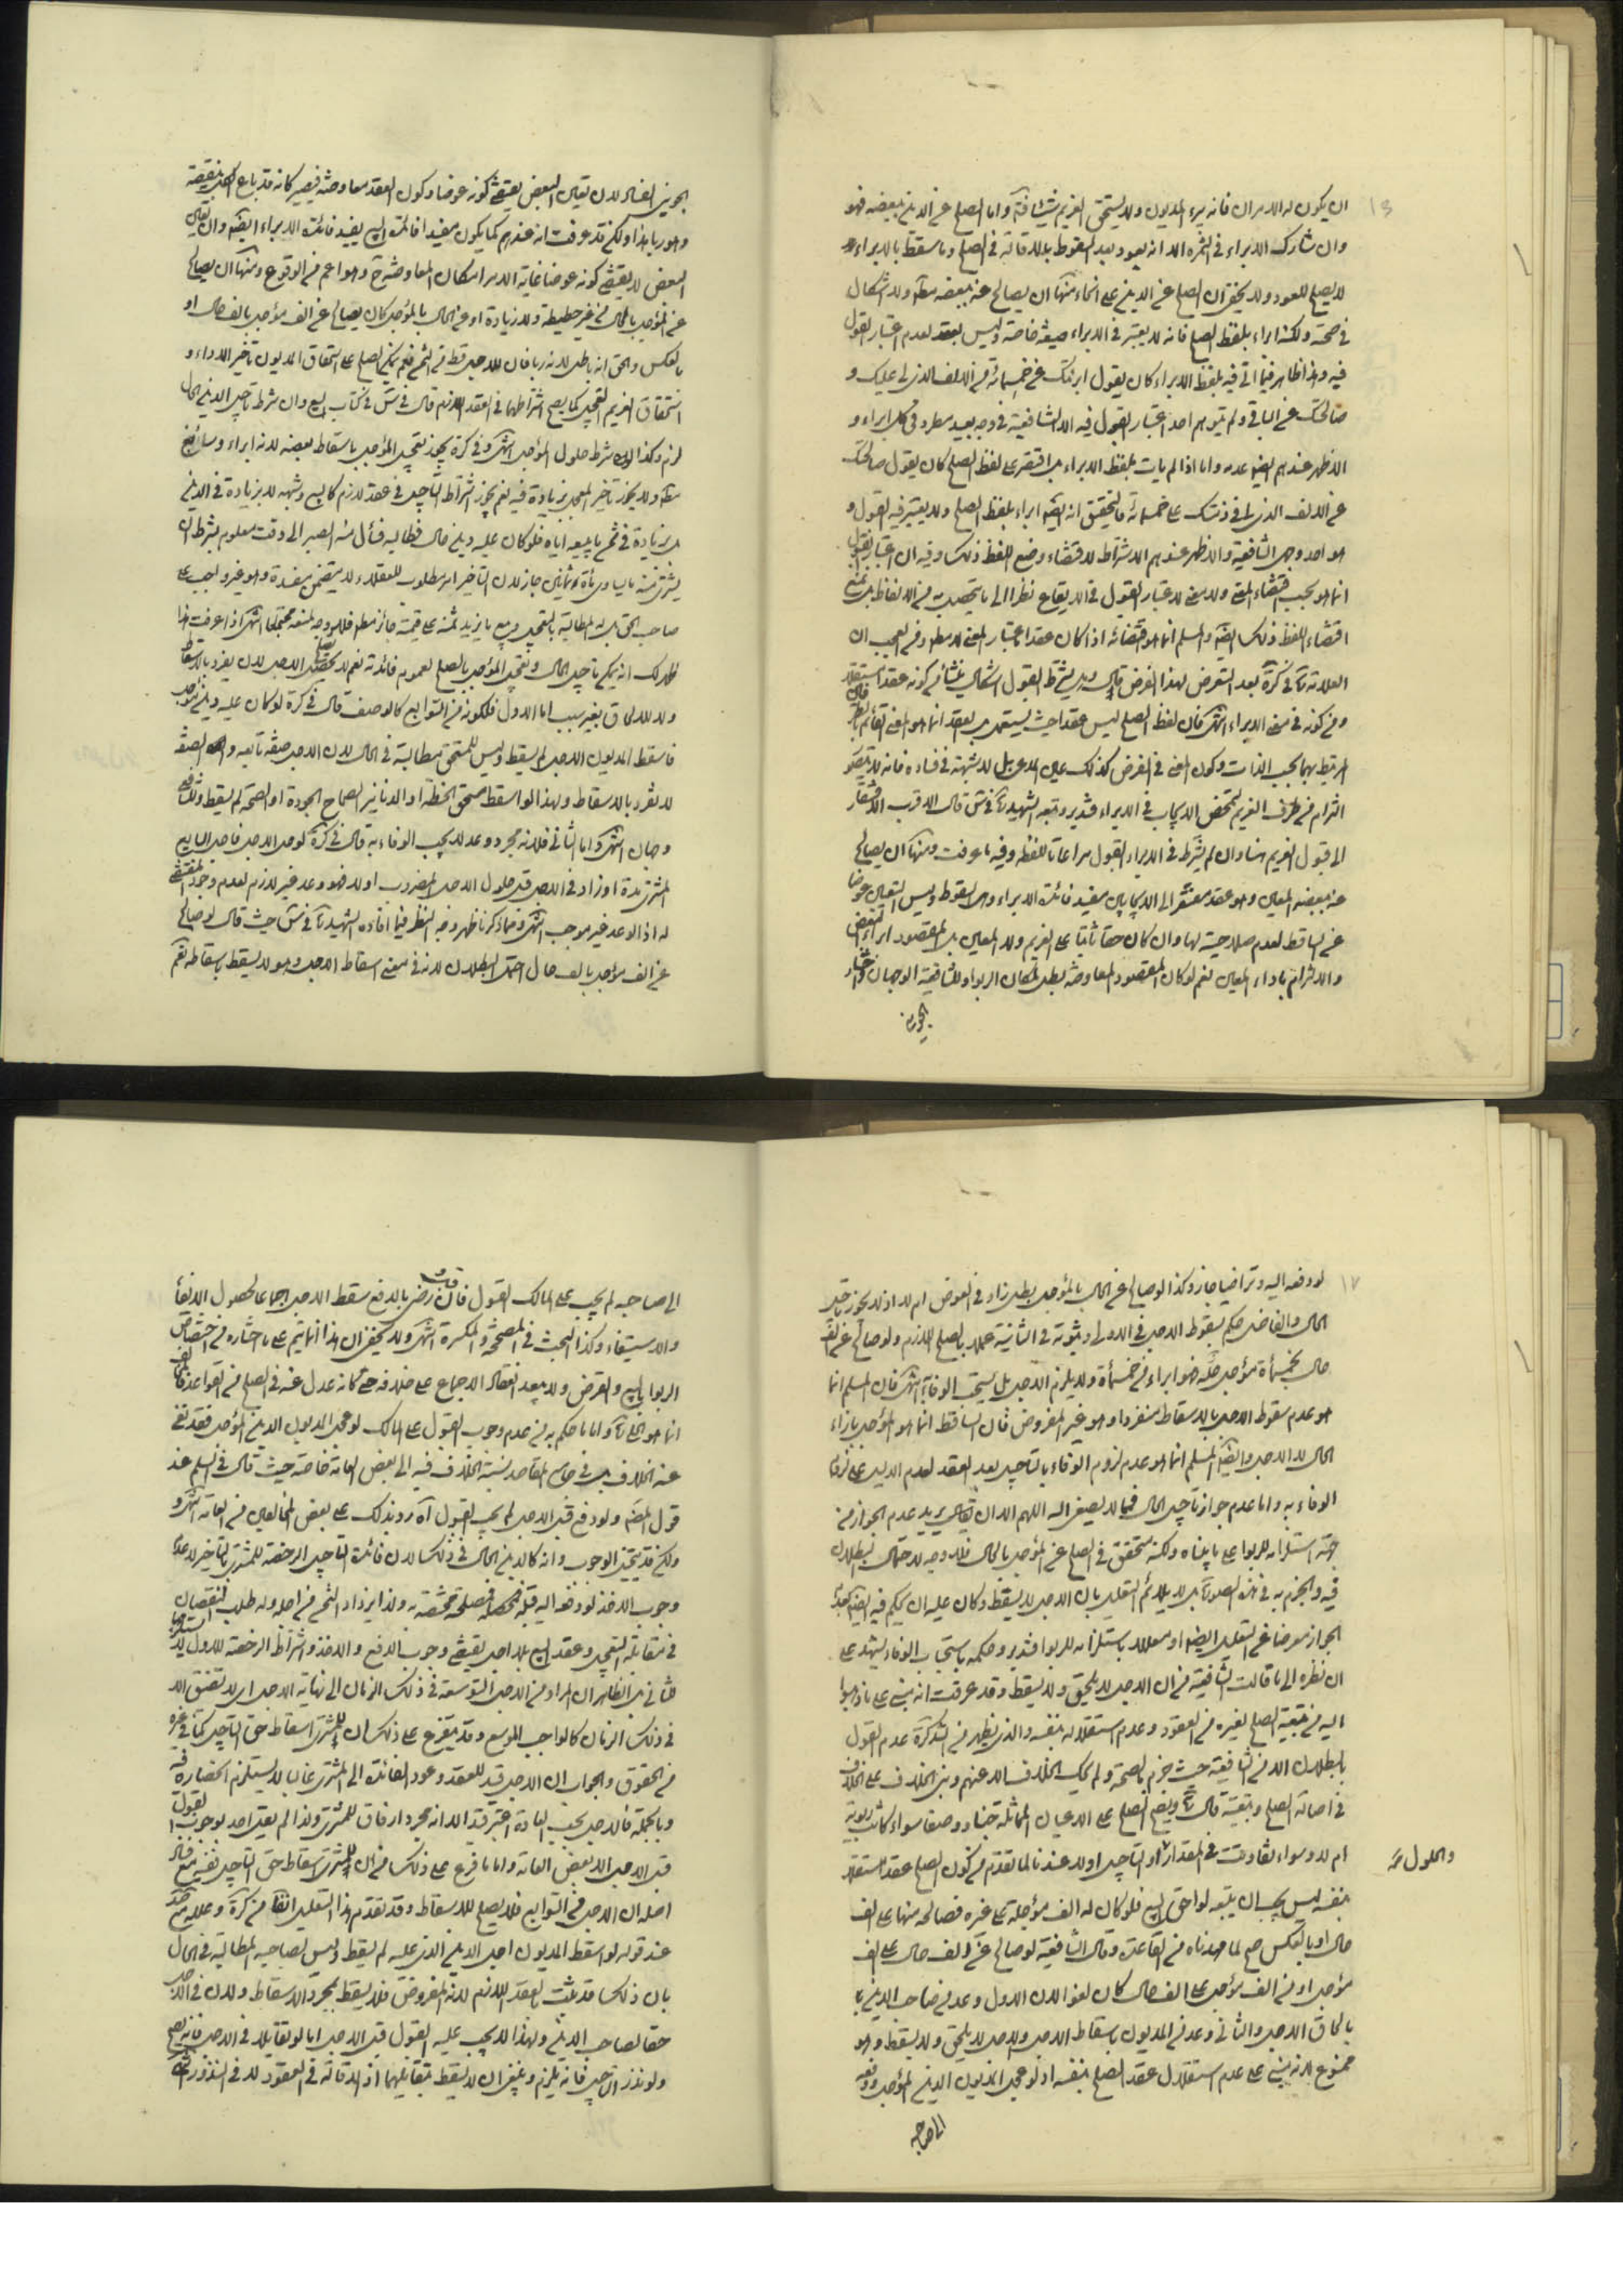 ان يكون له الامران فانه يبرء المديون ولا يستحق الغريم شيئا فتا واما الصلح عن الدين ببعضه فهو
وان شارك الابراء في الثمرة الا انه يعود بعد السقوط بالاقالة في الصلح وما سقط بالابراء
لا يصلح للعود ولا يخفى ان الصلح عن الدين على انحاء منها ان يصالح عنه ببعضه مط ولا اشكال
في صحته ولكنه ابراء بلفظ الصلح فانه لا يعتبر في الابراء صيغة خاصة وليس بعقد لعدم اعتبار القبول
فيه وهذا ظاهر فيما اتى فيه بلفظ الابراء كان يقول ابرئتك عن خمسمائة من الالف الذي لي عليك و
صالحتك عن الباقي ولم يتوهم احد اعتبار القبول فيه الا الشافعية في وجه بعيد مطرد في كل ابراء و
الاظهر عندهم ايضا عدمه واما اذا لم يات بلفظ الابراء بل اقتصر على لفظ الصلح كان يقول صالحتك
عن الالف الذي لي في ذمتك على خمسمائة فالتحقيق انه ايضا ابراء بلفظ الصلح ولا يعتبر فيه القبول و
هو احد وجهي الشافعية والاظهر عندهم الاشتراط لاقتضاء وضع اللفظ ذلك وفيه ان اعتبار القبول
انما هو بحسب اقتضاء المعنى ولا معنى لاعتبار القبول في الايقاع نظرا الى ما يتحصل به من الالفاظ بل نمنع
اقتضاء اللفظ ذلك ايضا والمسلم انما هو اقتضائه اذا كان عقدا باعتبار المعنى لا مط ومن العجب ان
العلامة في كرة بعد التعرض لهذا الفرض قال وهل يشترط القبول اشكال ينشأ من كونه عقدا مستقلا
ومن كونه في معنى الابراء انتهى فان لفظ الصلح ليس عقدا حيث يستعمل بل العقد انما هو المعنى القائم بالطرفين
المرتبط بهما بحسب الذات وكون المعنى في الفرض كذلك عين المدعى بل لا شبهة في فساده فانه لا يتصور
التزام من طرف الغريم لتمحض الايجاب في الابراء فتدبر وتبعه الشهيد في س قال الاقرب الافتقار
الى قبول الغريم هنا وان لم يشترط في الابراء القبول مراعاة للفظ وفيه ما عرفت ومنها ان يصالح
عنه ببعضه المعين وهو عقد مفتقر الى الايجابين مفيد فائدة الابراء وهي السقوط وليس التعيين عوضا
عن الساقط لعدم صلاحيته لها وان كان حقا ثابتا على الغريم ولا المعين بل المقصود ابراء البعض
والالتزام باداء المعين نعم لو كان المقصود المعاوضة بطل لمكان الربوا وللشافعية الوجهان واختار
الجويني
الجويني الفساد لان تعيين البعض يقتضي كونه عوضا وكون العقد معاوضة فيصير كانه قد باع الكل ببعضه
وهو ربا هذا ولكن قد عرفت انه عندهم كما يكون مفيدا فائدة البيع يفيد فائدة الابراء ايضا وان تعيين
البعض لا يقتضي كونه عوضا غاية الامر امكان المعاوضة وهو اعم من الوقوع ومنها ان يصالح
عن المؤجل بالحال من غير حطيطة ولا زيادة او عن الحال بالمؤجل كان يصالح عن الف مؤجل بالف حال او
بالعكس والحق انه باطل لانه ربا فان للاجل قسطا من الثمن نعم يمكن الصلح على استحقاق المديون تاخير الاداء و
استحقاق الغريم التعجيل كما يصح اشتراطهما في العقد اللازم قال في س في كتاب البيع وان شرط تاجيل الدين الحال
لزم وكذا لو شرط حلول المؤجل انتهى وفي كرة يجوز تعجيل المؤجل باسقاط بعضه لانه ابراء وسائغ
مط ولا يجوز تاخير المعجل بزيادة فيه نعم يجوز اشتراط التاجيل في عقد لازم كالبيع وشبهه لا بزيادة في الدين
بل بزيادة في ثمن ما يبيعه اياه فلو كان عليه دين حال فطالبه فسأل منه الصبر الى وقت معلوم بشرط ان
يشتري منه ما يساوي مأة بثمانين جاز لان التاخير امر مطلوب للعقلاء ولا يتضمن مفسدة وهو غير واجب على
صاحب الحق بل له المطالبة بالتعجيل وبيع ما يزيد ثمنه على قيمته جائز مط فلا وجه لمنعه مجتمعا انتهى اذا عرفت هذا
ظهر لك انه يمكن تاجيل الحال وتعجيل المؤجل بالصلح لعموم فائدته نعم لا يحصل الاجل لان يفرد بالاسقاط
ولا للالحاق بغير سبب اما الاول فلكونه من التوابع كالوصف قال في كرة لو كان عليه دين مؤجل
فاسقط المديون الاجل لم يسقط وليس للمستحق مطالبته في الحال لان الاجل صفة تابعة والصفة
لا تفرد بالاسقاط ولهذا لو اسقط مستحق الحنطة او الدنانير الصحاح الجودة او الصحة لم يسقط وللشافعي
وجهان انتهى واما الثاني فلانه مجرد وعد لا يجب الوفاء به قال في كرة لو حل الاجل فاجل البايع
المشتري مدة او زاد في الاجل قبل حلول الاجل المضروب اولا فهو وعد غير لازم لعدم وجود المقتضي
له اذ الوعد غير موجب انتهى ومما ذكرنا ظهر وجه النظر فيما افاده الشهيد في س حيث قال لو صالح
عن الف مؤجل بالف حال احتمل البطلان لانه في معنى اسقاط الاجل وهو لا يسقط باسقاطه نعم
لو دفعه اليه وتراضيا جاز وكذا لو صالح عن الحال بالمؤجل بطل زاد في العوض ام لا اذ لا يجوز تاجيل
الحال والفاضل حكم بسقوط الاجل في الاولى وثبوته في الثانية عملا بالصلح اللازم ولو صالح عن الف
حال بخمسمأة مؤجل صح فهو ابراء من خمسمأة ولا يلزم الاجل بل يستحب الوفاء انتهى فان المسلم انما
هو عدم سقوط الاجل بالاسقاط منفردا وهو غير المفروض فان الساقط انما هو المؤجل بازاء
الحال لا الاجل وايضا المسلم انما هو عدم لزوم الوفاء بالتاجيل بعد العقد لعدم الدليل على لزوم
الوفاء به واما عدم جواز تاجيل الحال فمما لا يصغى اليه اللهم الا ان يريد عدم الجواز من
جهة استلزامه للربوا على ما بيناه ولكنه متحقق في الصلح عن المؤجل بالحال فلا وجه لاحتمال البطلان
فيه والجزم به في هذه الصورة بل لا يلائم التعليل بان الاجل لا يسقط وكان عليه ان يحكم فيه ايضا بعدم
الجواز معرضا عن التعليل ايضا او معللا باستلزامه للربوا فتدبر وحكمه باستحباب الوفاء يشهد على
ان نظره الى ما قالت الشافعية من ان الاجل لا يلحق ولا يسقط وقد عرفت انه مبني على ما ذهبوا
اليه من تبعية الصلح لغيره من العقود وعدم استقلاله بنفسه والذي يظهر من التذكرة عدم القول
بالبطلان الا من الشافعية حيث جزم بالصحة ولم يحك الخلاف الا عنهم وبنى الخلاف على الخلاف
في اصالة الصلح وتبعيته قال ويصح الصلح على الاعيان المماثلة جنسا ووصفا سواء كانت ربوية
ام لا وسواء تفاوتت في المقدار او التاجيل اولا عندنا لما تقدم من كون الصلح عقدا مستقلا
والحلول
بنفسه ليس يجب ان يتبعه لواحق البيع فلو كان له الف مؤجلة على غيره فصالحه منها على الف
حال او بالعكس صح لما مهدناه من القاعدة وقال الشافعية لو صالح عن الف حال على الف
مؤجل او من الف مؤجل على الف حال كان لغوا لان الاول وعد من صاحب الدين
بالحاق الاجل والثاني وعد من المديون باسقاط الاجل والاجل لا يلحق ولا يسقط وهو
ممنوع لانه مبني على عدم استقلال عقد الصلح بنفسه اذ لو عجل المديون الدين المؤجل ودفعه
الى صاحبه
الى صاحبه لم يجب على المالك القبول فان رضي بالدفع سقط الاجل اجماعا لحصول الايفاء
والاستيفاء وكذا البحث في الصحة والمكسرة انتهى ولا يخفى ان هذا انما يتم على ما اختاره من اختصاص
الربوا بالبيع والقرض ولا يبعد انعقاد الاجماع على خلافه حتى كانه عدل عنه في الصلح من القواعد
انما هو واما ما حكم به من عدم وجوب القبول على المالك لو عجل المديون الدين المؤجل فقد نفى
عنه الخلاف بل في جامع المقاصد نسبة الخلاف فيه الى بعض العامة خاصة حيث قال في السلم عند
قول المصنف ولو دفع قبل الاجل لم يجب القبول اه رد بذلك على بعض المخالفين من العامة انتهى و
ولكن قد يتخيل الوجوب وانه كالدين الحال في ذلك لان فائدة التاجيل الرخصة للمشتري بالتاخير لا عدم
وجوب الاخذ لو دفعه اليه قبله فمصلحته مختصة به ولذا يزداد الثمن من اجله وله طلب النقصان
في مقابلة التعجيل وعقد البيع بلا اجل يقتضي وجوب الدفع والاخذ واشتراط الرخصة للاول لا يستلزم
الثاني بل الظاهر ان المراد من الاجل التوسعة في ذلك الزمان الى نهاية الاجل اي لا تضيق الا
في ذلك الزمان كالواجب الموسع وقد يتفرع على ذلك ان للمشتري اسقاط حق التاجيل كما في غيره
من الحقوق والجواب ان الاجل قيد للعقد وعود الفائدة الى المشتري غالبا لا يستلزم انحصاره فيه
وبالجملة فالاجل بحسب العادة اعتبر قيدا لانه مجرد ارفاق للمشتري ولذا لم يقل احد بوجوب القبول
قبل الاجل الا بعض العامة واما ما فرع على ذلك من ان للمشتري اسقاط حق التاجيل ففيه منع فان
اصله ان الاجل من التوابع فلا يصلح للاسقاط وقد تقدم هذا التعليل انفا من كرة وعلله في
عند قوله لو اسقط المديون اجل الدين الذي عليه لم يسقط وليس لصاحبه المطالبة في الحال
بان ذلك قد ثبت بالعقد اللازم لانه المفروض فلا يسقط بمجرد الاسقاط ولان في الاجل
حقا لصاحب الدين ولهذا لا يجب عليه القبول قبل الاجل اما لو تقايلا في الاجل فانه يصح
ولو نذر التاجيل فانه يلزم وينبغي ان لا يسقط بتقايلهما اذ الاقالة في العقود لا في النذور انتهى